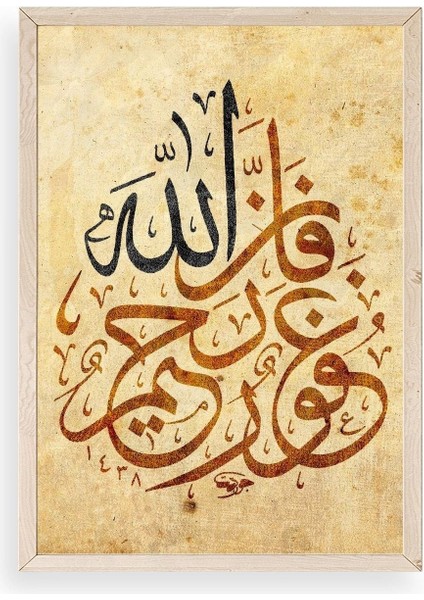 فَاِنَّ اللّٰه
غفورٌ رحيمٌ
١٤٣٨